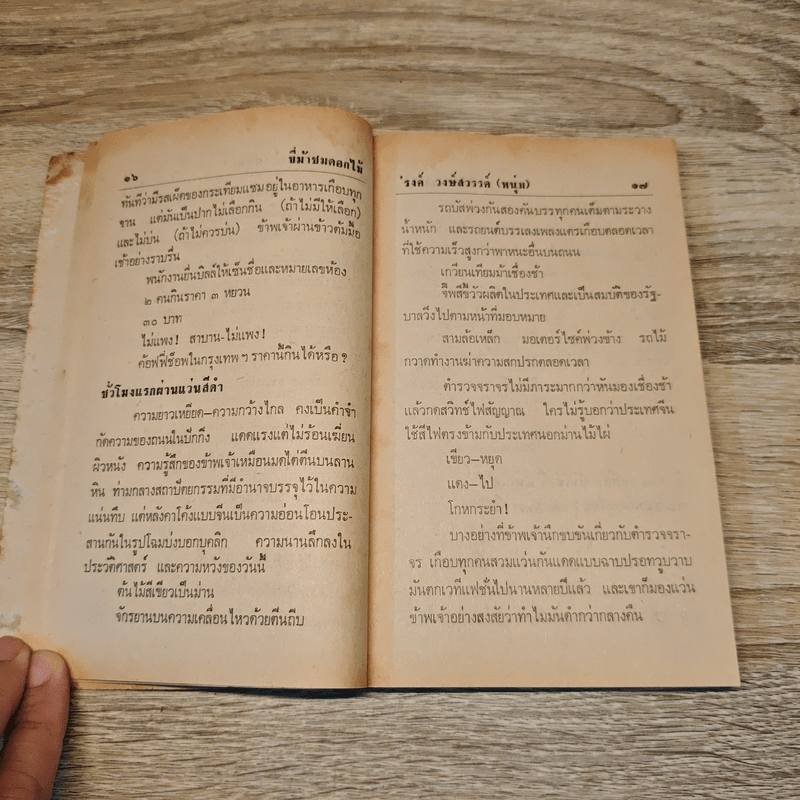 ๑๖ ขี่ม้าชมดอกไม้
ทันทีว่ามีรสเผ็ดของกระเทียมแซมอยู่ในอาหารเกือบทุก
จาน แต่มันเป็นปากไม่เลือกกิน (ถ้าไม่มีให้เลือก)
และไม่บ่น (ถ้าไม่ควรบ่น) ข้าพเจ้าผ่านข้าวต้มมื้อ
เช้าอย่างราบรื่น
พนักงานยื่นบิลล์ให้เซ็นชื่อและหมายเลขห้อง
๒ คนกินราคา ๓ หยวน
๓๐ บาท
ไม่แพง! สาบาน-ไม่แพง!
ค้อฟฟี่ช็อพในกรุงเทพ ฯ ราคานี้กินได้หรือ ?
ชั่วโมงแรกผ่านแว่นสีดำ
ความยาวเหยียด—ความกว้างไกล คงเป็นคำจำ
กัดความของถนนในปักกิ่ง แดดแรงแต่ไม่ร้อนเฆี่ยน
ผิวหนัง ความรู้สึกของข้าพเจ้าเหมือนมดไต่ตีนบนลาน
หิน ท่ามกลางสถาปัตยกรรมที่มีอำนาจบรรจุไว้ในความ
แน่นทึบ แต่หลังคาโค้งแบบจีนเป็นความอ่อนโอนประ-
สานกันในรูปโฉมบ่งบอกบุคลิก ความนานลึกลงใน
ประวัติศาสตร์ และความหวังของวันนี้
ต้นไม้สีเขียวเป็นม่าน
จักรยานบนความเคลื่อนไหวด้วยตีนถีบ
'รงค์ วงษ์สวรรค์ (หนุ่ม) ๑๗
รถบัสพ่วงกันสองคันบรรทุกคนเต็มตามระวาง
น้ำหนัก และรถยนต์บรรเลงเพลงแตรเกือบตลอดเวลา
ที่ใช้ความเร็วสูงกว่าพาหนะอื่นบนถนน
เกวียนเทียมม้าเชื่องช้า
จี๊พสีขี้วัวผลิตในประเทศและเป็นสมบัติของรัฐ-
บาลวิ่งไปตามหน้าที่มอบหมาย
สามล้อเหล็ก มอเตอร์ไซค์พ่วงข้าง รถไม้
กวาดทำงานฆ่าความสกปรกตลอดเวลา
ตำรวจจราจรไม่มีภาระมากกว่าหันมองเชื่องช้า
แล้วกดสวิทช์ไฟสัญญาณ ใครไม่รู้บอกว่าประเทศจีน
ใช้สีไฟตรงข้ามกับประเทศนอกม่านไม้ไผ่
เขียว—หยุด
แดง—ไป
โกหกระยำ!
บางอย่างที่ข้าพเจ้านึกขบขันเกี่ยวกับตำรวจจรา-
จร เกือบทุกคนสวมแว่นกันแดดแบบฉาบปรอทวูบวาบ
มันตกเวทีแฟชั่นไปนานหลายปีแล้ว และเขาก็มองแว่น
ข้าพเจ้าอย่างสงสัยว่าทำไมมันดำกว่ากลางคืน